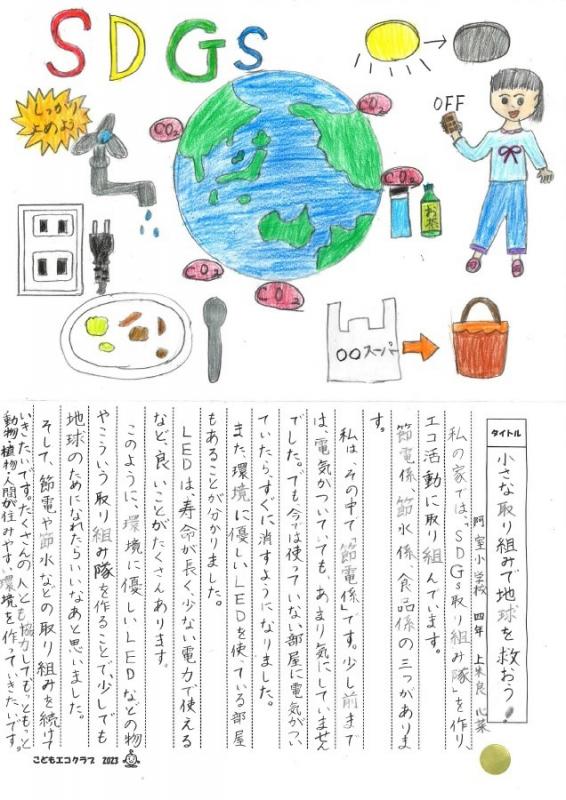 SDGs
しっかり
とめよう
OFF
CO₂
CO₂
CO₂
CO₂
お茶
〇〇スーパー
タイトル
小さな取り組みで地球を救おう!
阿室小学校 四年 上朱良 心菜
私の家では、「SDGs取り組み隊」を作り
エコ活動に取り組んでいます。
節電係、節水係、食品係の三つがありま
す。
私は、その中で「節電係」です。少し前まで
は、電気がついていても、あまり気にしていません
でした。でも今では使っていない部屋に電気がつい
ていたら、すぐに消すようになりました。
また、環境に優しいLEDを使っている部屋
もあることが分かりました。
LEDは寿命が長く少ない電力で使える
など、良いことがたくさんあります。
このように、環境に優しいLEDなどの物
やこういう取り組み隊を作ることで、少しでも
地球のためになれたらいいなあと思いました。
そして、節電や節水などの取り組みを続けて
いきたいです。たくさんの人とも協力してもっともっと
動物・植物・人間が住みやすい環境を作っていきたいです。
こどもエコクラブ 2023